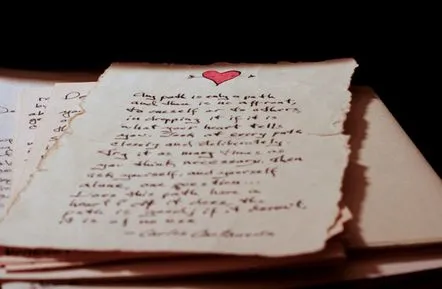 Any path is only a path
and there is no affront,
to oneself or to others
in dropping it if it is
what your heart tells
you. Look at every path
closely and deliberately.
Try it as many times as
you think necessary. Then
ask yourself, and yourself
alone, one question...
Does this path have a
heart? If it does the
path is good; if it doesn't,
it is of no use
— Carlos